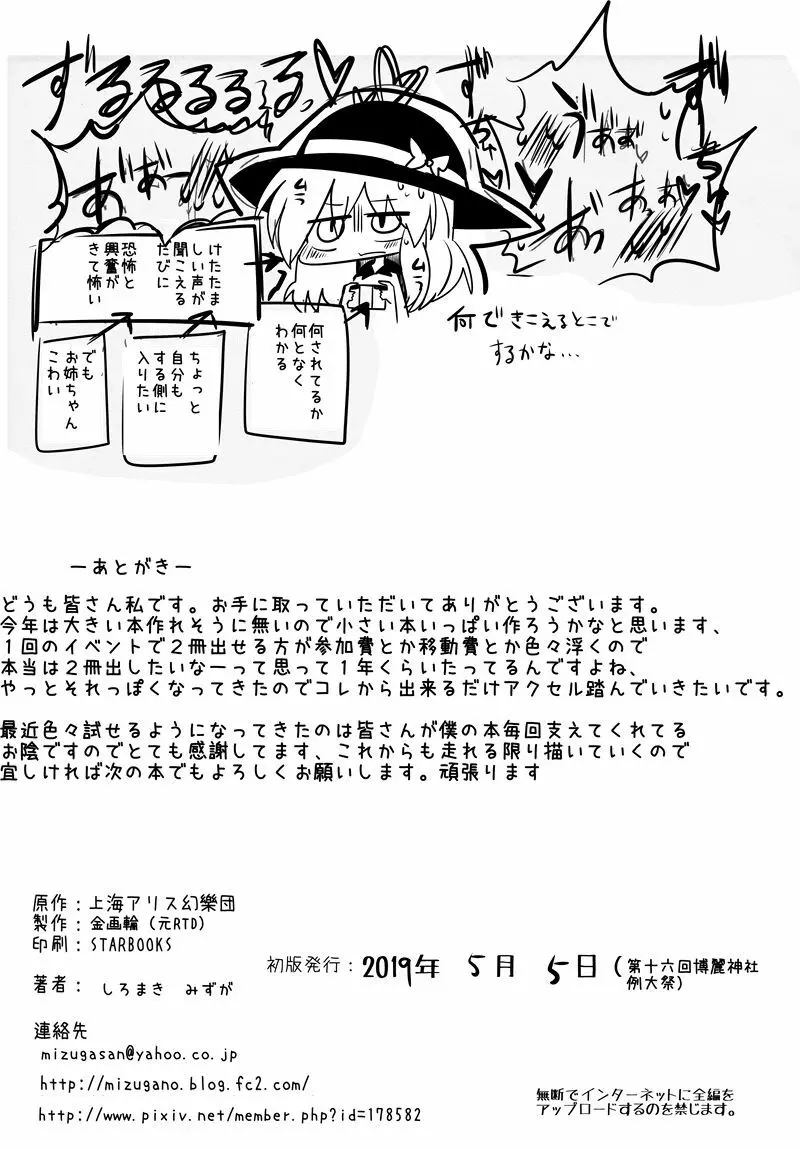 ずるるるるる、♡
ず
ちゅ
うぁぁ
ず
ちゅ
あぁーー
けたたま
しい声が
聞こえる
たびに
恐怖と
興奮が
きて怖い
何されてるか
何となく
わかる
ちょっと
自分も
する側に
入りたい
でも
お姉ちゃん
こわい
何できこえるとこで
するかな…
ーあとがきー
どうも皆さん私です。お手に取っていただいてありがとうございます。
今年は大きい本作れそうに無いので小さい本いっぱい作ろうかなと思います、
1回のイベントで2冊出せる方が参加費とか移動費とか色々浮くので
本当は2冊出したいなーって思って1年くらいたってるんですよね、
やっとそれっぽくなってきたのでコレから出来るだけアクセル踏んでいきたいです。
最近色々試せるようになってきたのは皆さんが僕の本毎回支えてくれてる
お陰ですのでとても感謝してます、これからも走れる限り描いていくので
宜しければ次の本でもよろしくお願いします。頑張ります
原作：上海アリス幻樂団
製作：金画輪（元RTD）
印刷：STARBOOKS
初版発行：2019年 5月 5日（第十六回博麗神社
例大祭）
著者： しろまき みずが
連絡先
mizugasan@yahoo.co.jp
http://mizugano.blog.fc2.com/
http://www.pixiv.net/member.php?id=178582
無断でインターネットに全編を
アップロードするのを禁じます。